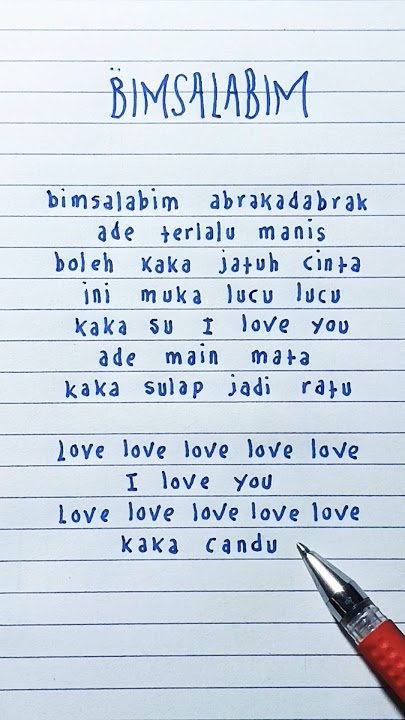 BIMSALABIM
bimsalabim abrakadabrak
ade terlalu manis
boleh kaka jatuh cinta
ini muka lucu lucu
kaka su I love you
ade main mata
kaka sulap jadi ratu
Love love love love love
I love you
Love love love love love
kaka candu